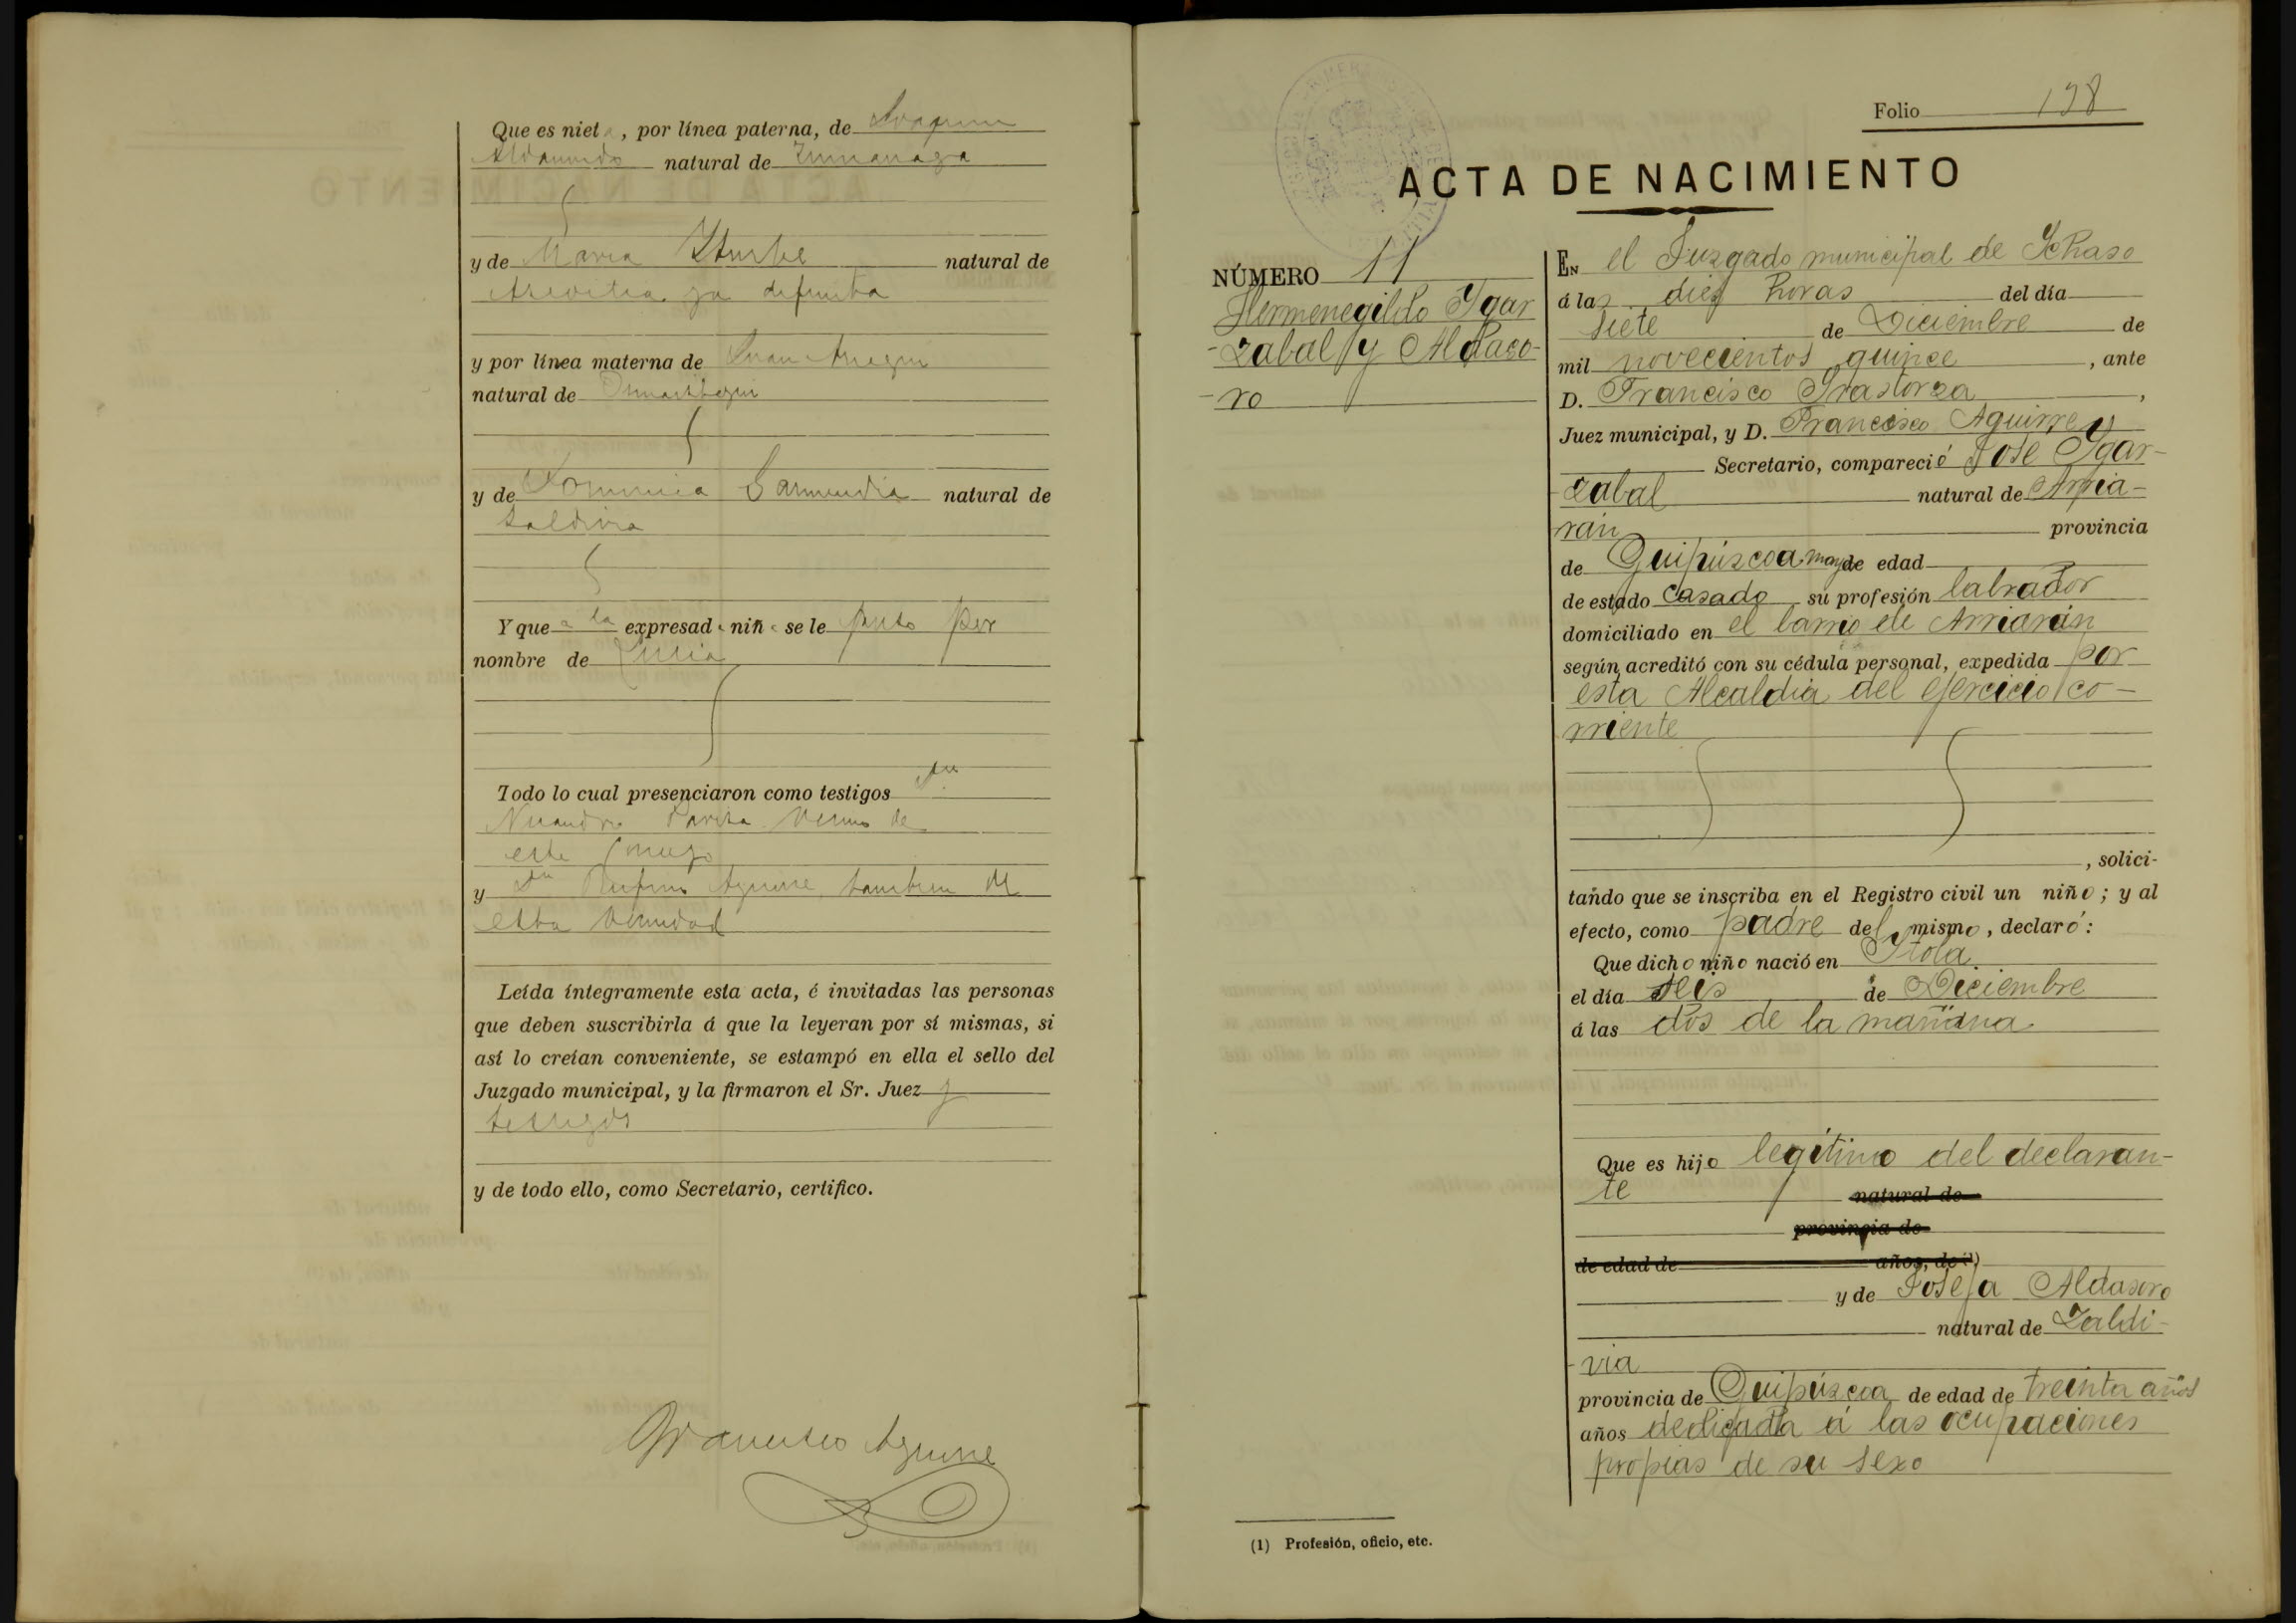 Que es niet , por línea paterna, de Joaquin
natural de Zumarraga
y de Maria Iturbe natural de
ya difunta
y por línea materna de Juan
natural de
y de Garmendia natural de
Zaldivia
Y que á la expresad niñ se le puso por
nombre de
Todo lo cual presenciaron como testigos Dn
Nicandro
este
y Dn Rufino Aguirre tambien de
esta vecindad
Leída íntegramente esta acta, é invitadas las personas
que deben suscribirla á que la leyeran por sí mismas, si
así lo creían conveniente, se estampó en ella el sello del
Juzgado municipal, y la firmaron el Sr. Juez y
testigos
y de todo ello, como Secretario, certifico.
Francisco Aguirre
Folio 198
ACTA DE NACIMIENTO
NÚMERO 11
Hermenegildo Ygar
-zabal y Aldaso-
-ro
EN el Juzgado municipal de Ychaso
á las diez horas del día
siete de Diciembre de
mil novecientos quince , ante
D. Francisco Yrastorza ,
Juez municipal, y D. Francisco Aguirre y
Secretario, compareció José Ygar-
zabal natural de Arria-
rán provincia
de Guipúzcoa may de edad
de estado casado su profesión labrador
domiciliado en el barrio de Arriarán
según acreditó con su cédula personal, expedida por
esta Alcaldia del ejercicio co-
rriente
, solici-
tando que se inscriba en el Registro civil un niño; y al
efecto, como padre del mismo, declaró:
Que dicho niño nació en Ytola
el día seis de Diciembre
á las dos de la mañana
Que es hijo legítimo del declaran-
te natural de
provincia de
de edad de años, de (1)
y de Josefa Aldasoro
natural de Zaldi-
via
provincia de Guipúzcoa de edad de treinta años
años dedicada á las ocupaciones
propias de su sexo
(1) Profesión, oficio, etc.